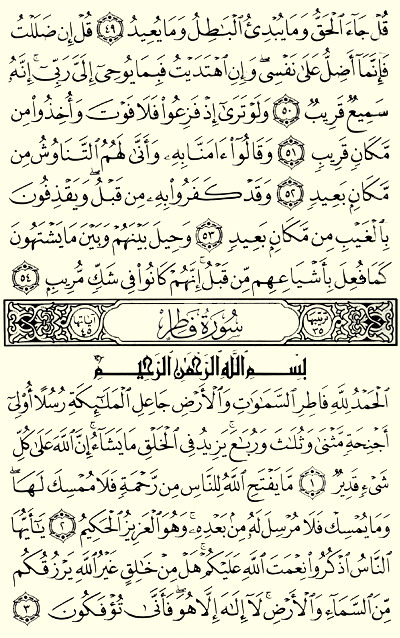 قُلْ جَآءَ ٱلْحَقُّ وَمَا يُبْدِئُ ٱلْبَـٰطِلُ وَمَا يُعِيدُ ﴿٤٩﴾ قُلْ إِن ضَلَلْتُ
فَإِنَّمَآ أَضِلُّ عَلَىٰ نَفْسِى ۖ وَإِنِ ٱهْتَدَيْتُ فَبِمَا يُوحِىٓ إِلَىَّ رَبِّىٓ ۚ إِنَّهُۥ
سَمِيعٌ قَرِيبٌ ﴿٥٠﴾ وَلَوْ تَرَىٰٓ إِذْ فَزِعُوا۟ فَلَا فَوْتَ وَأُخِذُوا۟ مِن
مَّكَانٍ قَرِيبٍ ﴿٥١﴾ وَقَالُوٓا۟ ءَامَنَّا بِهِۦ وَأَنَّىٰ لَهُمُ ٱلتَّنَاوُشُ مِن
مَّكَانٍۭ بَعِيدٍ ﴿٥٢﴾ وَقَدْ كَفَرُوا۟ بِهِۦ مِن قَبْلُ ۖ وَيَقْذِفُونَ
بِٱلْغَيْبِ مِن مَّكَانٍۭ بَعِيدٍ ﴿٥٣﴾ وَحِيلَ بَيْنَهُمْ وَبَيْنَ مَا يَشْتَهُونَ
كَمَا فُعِلَ بِأَشْيَاعِهِم مِّن قَبْلُ ۚ إِنَّهُمْ كَانُوا۟ فِى شَكٍّ مُّرِيبٍۭ ﴿٥٤﴾
ترتيبها ٣٥ سُورَةُ فَاطِر آياتها ٤٥
بِسْمِ ٱللَّهِ ٱلرَّحْمَـٰنِ ٱلرَّحِيمِ
ٱلْحَمْدُ لِلَّهِ فَاطِرِ ٱلسَّمَـٰوَٰتِ وَٱلْأَرْضِ جَاعِلِ ٱلْمَلَـٰٓئِكَةِ رُسُلًا أُو۟لِىٓ
أَجْنِحَةٍ مَّثْنَىٰ وَثُلَـٰثَ وَرُبَـٰعَ ۚ يَزِيدُ فِى ٱلْخَلْقِ مَا يَشَآءُ ۚ إِنَّ ٱللَّهَ عَلَىٰ كُلِّ
شَىْءٍ قَدِيرٌ ﴿١﴾ مَّا يَفْتَحِ ٱللَّهُ لِلنَّاسِ مِن رَّحْمَةٍ فَلَا مُمْسِكَ لَهَا ۖ
وَمَا يُمْسِكْ فَلَا مُرْسِلَ لَهُۥ مِنۢ بَعْدِهِۦ ۚ وَهُوَ ٱلْعَزِيزُ ٱلْحَكِيمُ ﴿٢﴾ يَـٰٓأَيُّهَا
ٱلنَّاسُ ٱذْكُرُوا۟ نِعْمَتَ ٱللَّهِ عَلَيْكُمْ ۚ هَلْ مِنْ خَـٰلِقٍ غَيْرُ ٱللَّهِ يَرْزُقُكُم
مِّنَ ٱلسَّمَآءِ وَٱلْأَرْضِ ۚ لَآ إِلَـٰهَ إِلَّا هُوَ ۖ فَأَنَّىٰ تُؤْفَكُونَ ﴿٣﴾